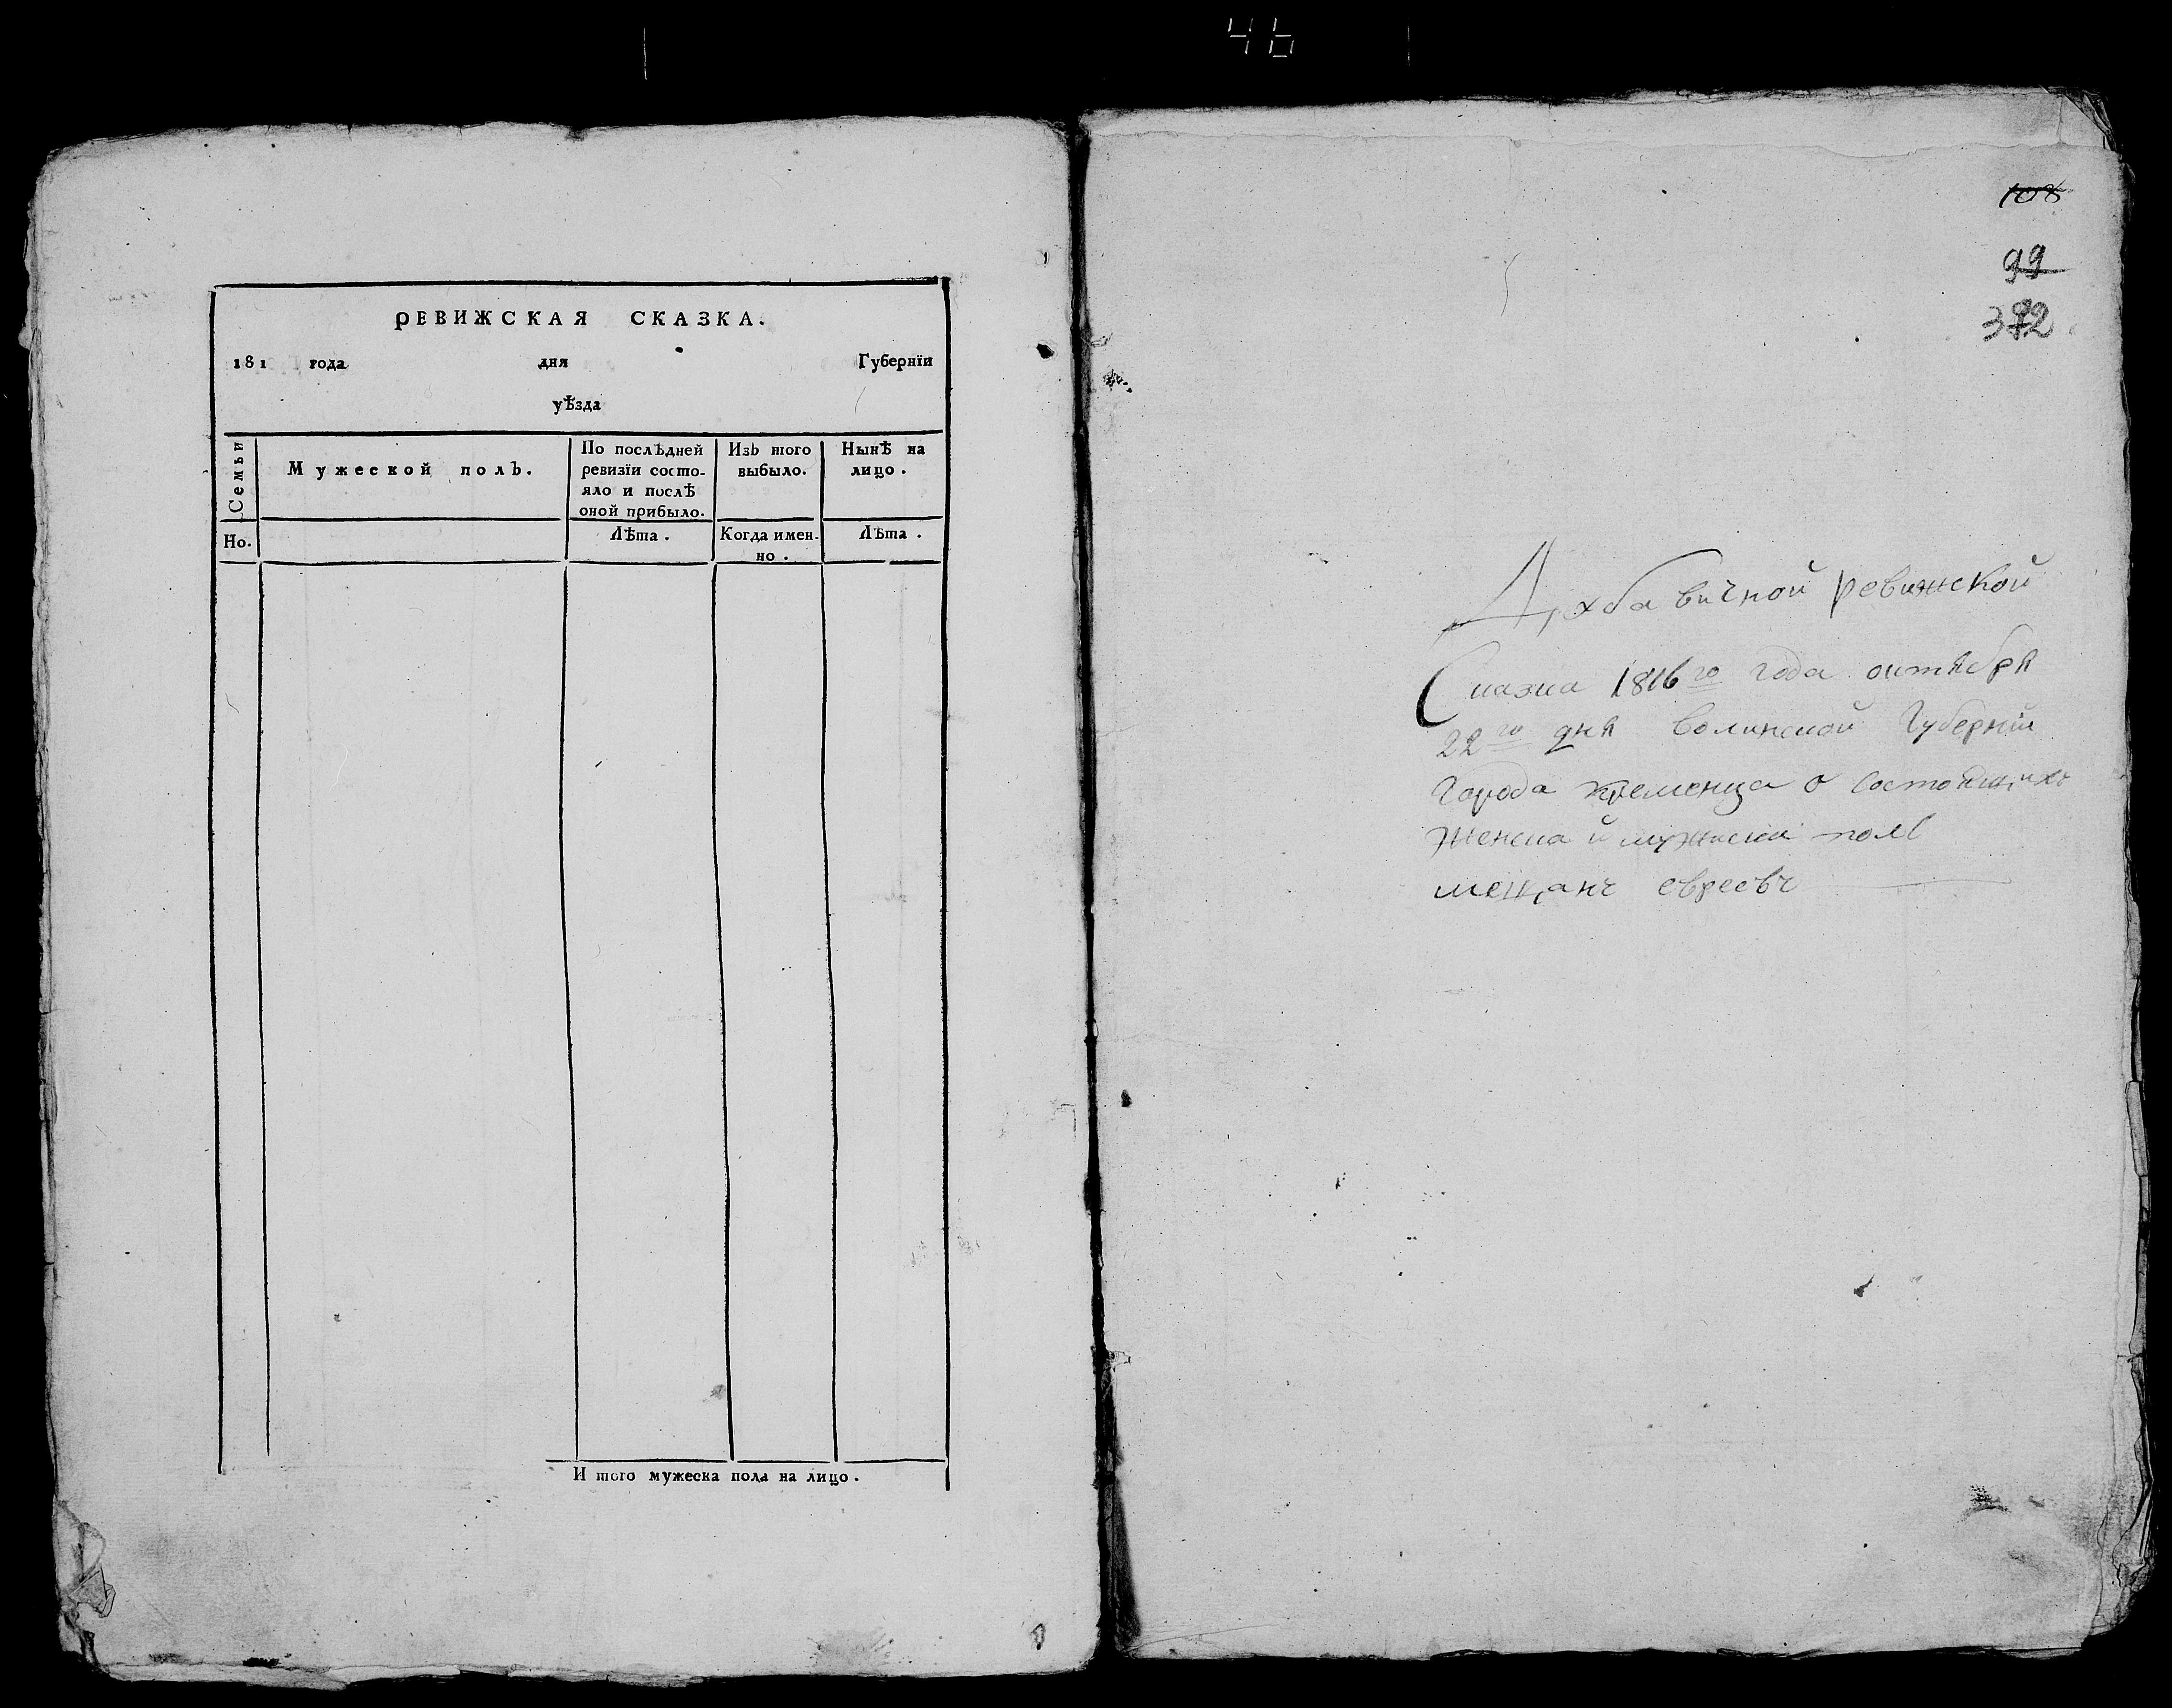 46
РЕВИЖСКАЯ СКАЗКА.
181 года дня Губернїи
уѣзда
Семьи
Мужеской полъ.
По послѣдней
ревизїи состо-
яло и послѣ
оной прибыло.
Изъ того
выбыло.
Нынѣ на
лицо.
Но.
Лѣта.
Когда имен-
но.
Лѣта.
И того мужеска пола на лицо.
108
99
Дхбавичной ревижской
Сказка 1816го года октября
22го дня Волинской Губернїи
Города Кременца о состоящихъ
женска и мужиска полъ
мещанъ евреевъ